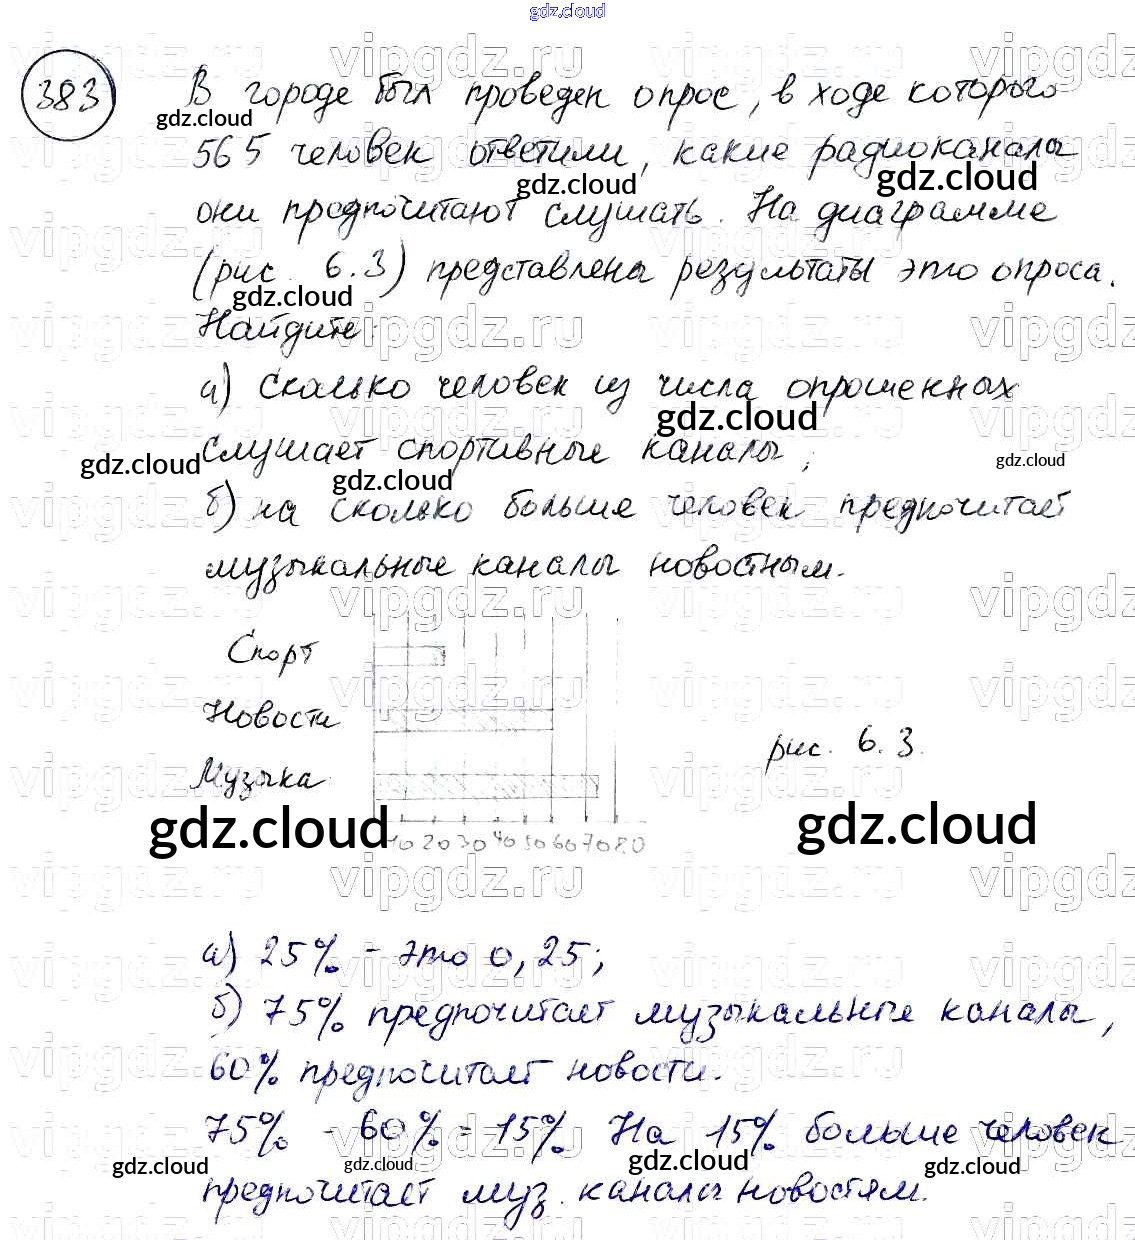 vipgdz.cloud
383
В городе был проведен опрос, в ходе которого
565 человек ответили, какие радиоканалы
они предпочитают слушать. На диаграмме
(рис. 6.3) представлены результаты это опроса.
Найдите:
а) сколько человек из числа опрошенных
слушает спортивные каналы;
б) на сколько больше человек предпочитает
музыкальные каналы новостным.
Спорт
Новости
Музыка
10 20 30 40 50 60 70 80
рис. 6.3.
а) 25% - это 0,25;
б) 75% предпочитает музыкальные каналы,
60% предпочитает новости.
75% - 60% = 15% На 15% больше человек
предпочитает муз. каналы новостям.
gdz.cloud
vipgdz.ru